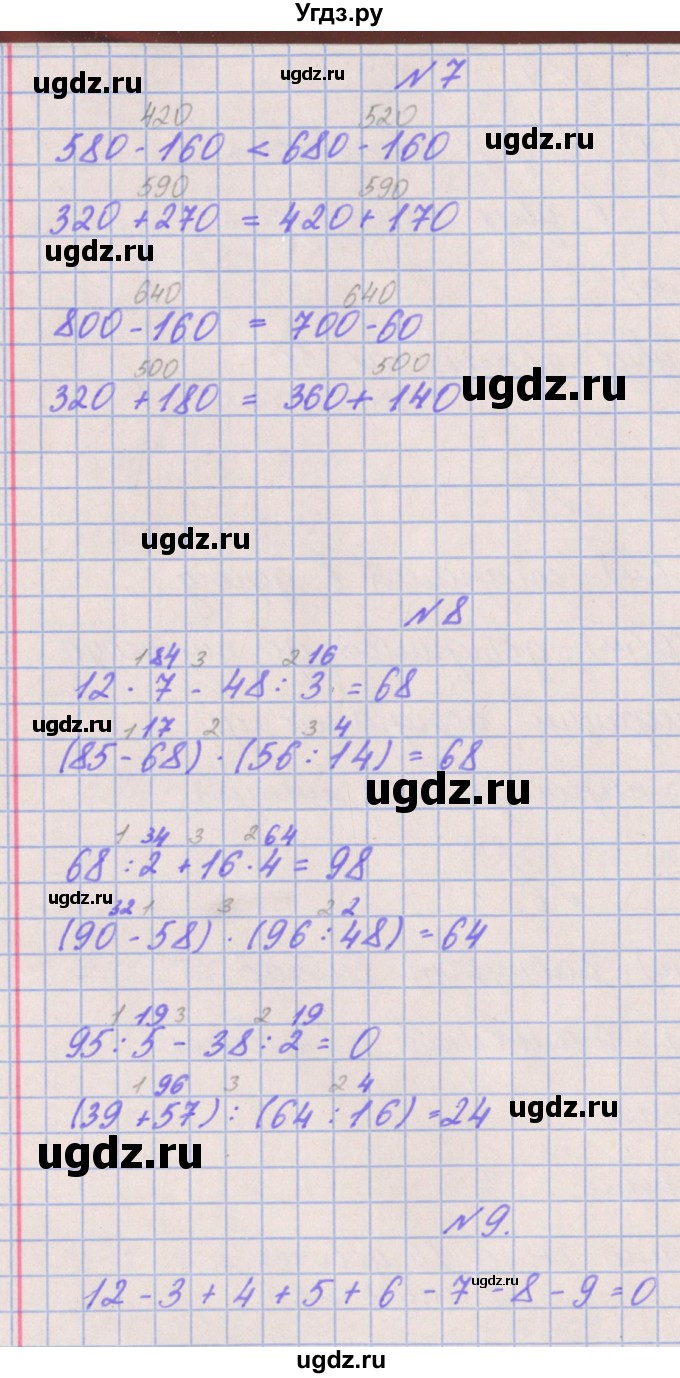 Угдз.ру
ugdz.ru ugdz.ru N7
420 520
580 - 160 < 680 - 160 ugdz.ru
590 590
320 + 270 = 420 + 170
ugdz.ru
640 640
800 - 160 = 700 - 60
500 500
320 + 180 = 360 + 140 ugdz.ru
ugdz.ru
N8
1 84 3 2 16
12 · 7 - 48 : 3 = 68
ugdz.ru 1 17 2 3 4
(85 - 68) · (56 : 14) = 68
ugdz.ru
1 34 3 2 64
68 : 2 + 16 · 4 = 98
ugdz.ru 32 1 3 2 2
(90 - 58) · (96 : 48) = 64
1 19 3 2 19
95 : 5 - 38 : 2 = 0
1 96 3 2 4
(39 + 57) : (64 : 16) = 24 ugdz.ru
ugdz.ru
N9.
ugdz.ru
12 - 3 + 4 + 5 + 6 - 7 - 8 - 9 = 0
ugdz.ru